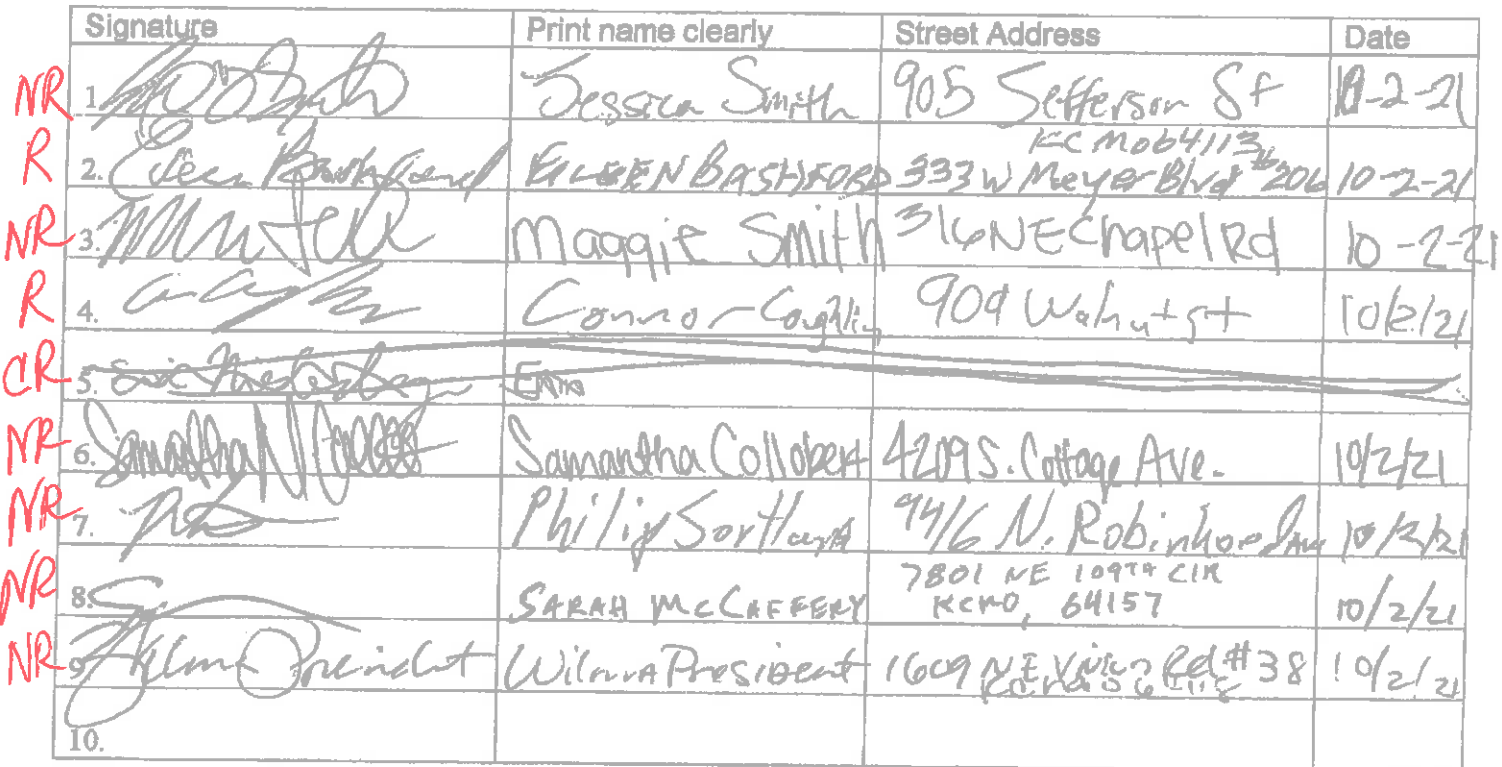 Signature Print name clearly Street Address Date
NR 1. Jessica Smith 905 Jefferson St 10-2-21
KC Mo 64113
R 2. Eileen Bashford EILEEN BASHFORD 333 W Meyer Blvd #206 10-2-21
NR 3. Maggie Smith 316 NE Chapel Rd 10-2-21
R 4. Connor Coughlin 909 Walnut st 10/2/21
CR 5. Erin
NR 6. Samantha N Samantha Collobert 4209 S. Cottage Ave. 10/2/21
NR 7. Philip 9416 N. Robinhood Ave 10/2/21
7801 NE 109TH CIR
NR 8. SARAH McCAFFERY KCMO, 64157 10/2/21
NR 9. Wilma President Wilma President 1609 NE Rd #38 10/2/21
10.